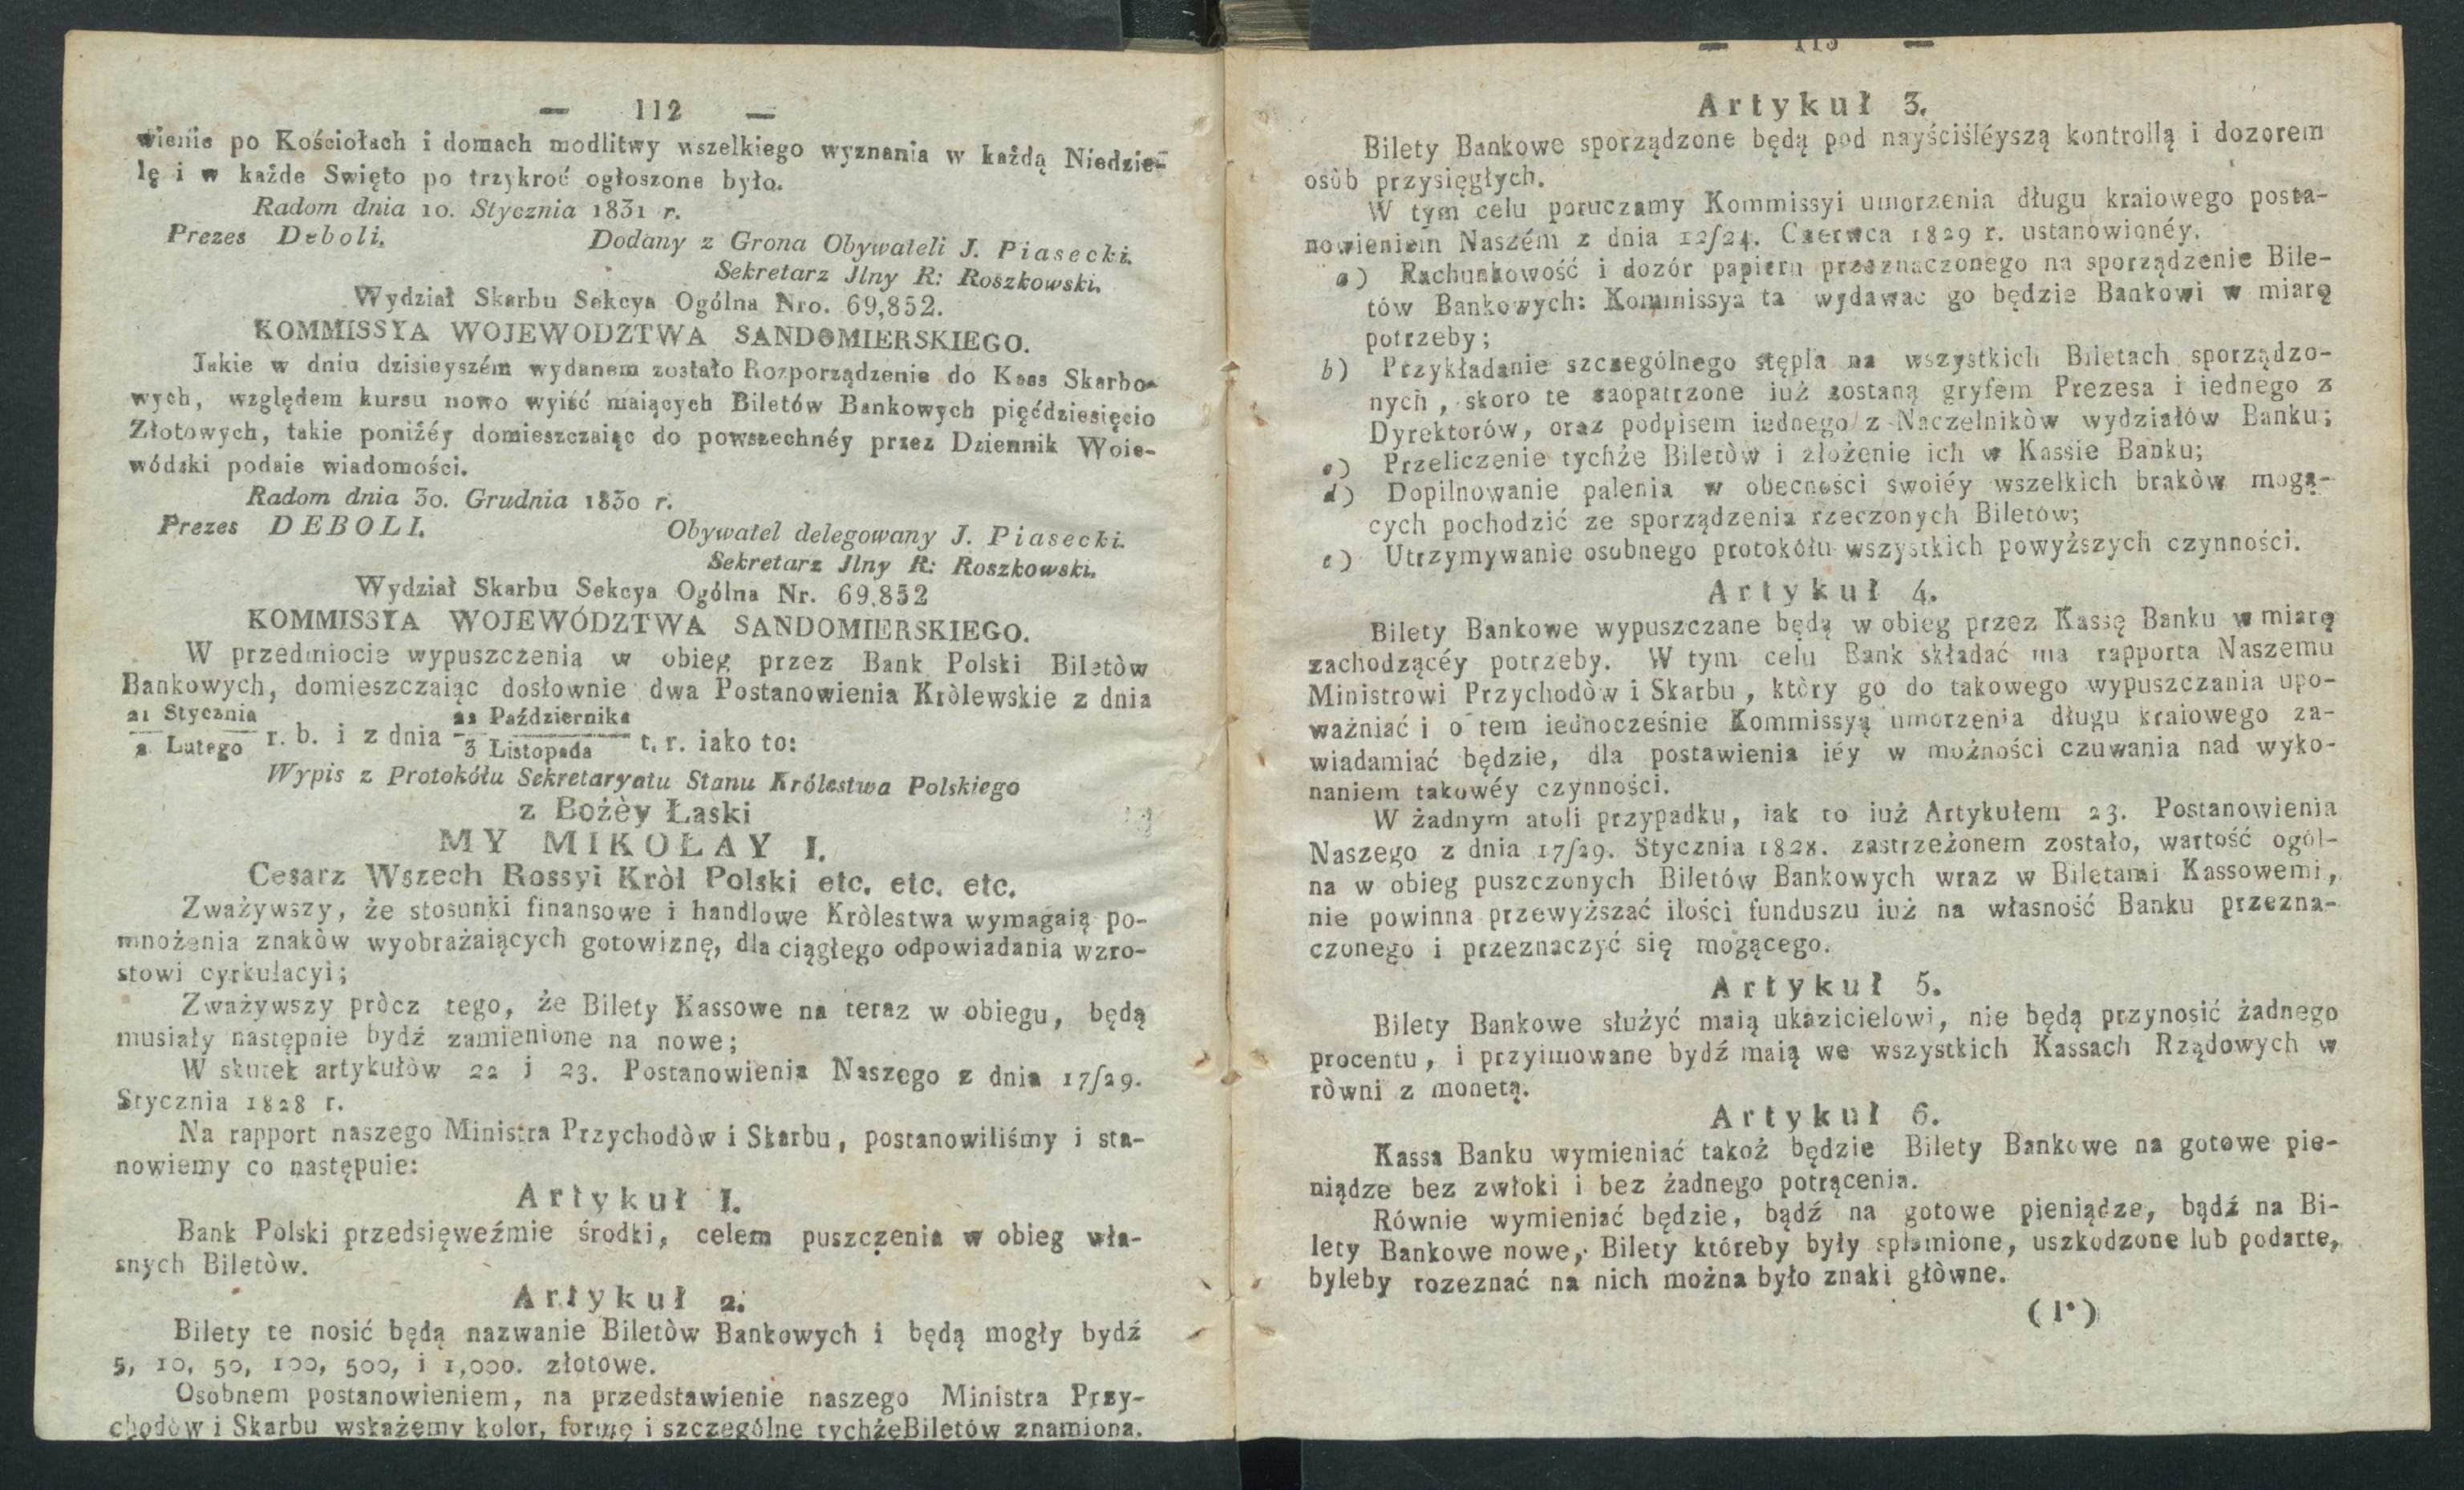 — 112 —
wienie po Kościołach i domach modlitwy wszelkiego wyznania w każdą Niedzie-
lę i w każde Swięto po trzykroć ogłoszone było.
Radom dnia 10. Stycznia 1831 r.
Prezes Deboli. Dodany z Grona Obywateli J. Piasecki.
Sekretarz Jlny R: Roszkowski.
Wydział Skarbu Sekcya Ogólna Nro. 69,852.
KOMMISSYA WOJEWODZTWA SANDOMIERSKIEGO.
Jakie w dniu dzisieyszém wydanem zostało Rozporządzenie do Kass Skarbo-
wych, względem kursu nowo wyiść maiących Biletów Bankowych pięćdziesięcio
Złotowych, takie poniżéy domieszczaiąc do powszechnéy przez Dziennik Woie-
wódzki podaie wiadomości.
Radom dnia 30. Grudnia 1830 r.
Prezes DEBOLI. Obywatel delegowany J. Piasecki.
Sekretarz Jlny R: Roszkowski.
Wydział Skarbu Sekcya Ogólna Nr. 69,852
KOMMISSYA WOJEWÓDZTWA SANDOMIERSKIEGO.
W przedmiocie wypuszczenia w obieg przez Bank Polski Biletòw
Bankowych, domieszczaiąc dosłownie dwa Postanowienia Kròlewskie z dnia
21 Stycznia 22 Października
2 Lutego r. b. i z dnia 3 Listopada t. r. iako to:
Wypis z Protokółu Sekretaryatu Stanu Królestwa Polskiego
z Bożèy Łaski
MY MIKOŁAY I.
Cesarz Wszech Rossyi Kròl Polski etc. etc. etc.
Zważywszy, że stosunki finansowe i handlowe Kròlestwa wymagaią po-
mnożenia znakòw wyobrażaiących gotowiznę, dla ciągłego odpowiadania wzro-
stowi cyrkulacyi;
Zważywszy pròcz tego, że Bilety Kassowe na teraz w obiegu, będą
musiały następnie bydź zamienione na nowe;
W skutek artykułòw 22 i 23. Postanowienia Naszego z dnia 17/29.
Stycznia 1828 r.
Na rapport naszego Ministra Przychodòw i Skarbu, postanowiliśmy i sta-
nowiemy co następuie:
Artykuł 1.
Bank Polski przedsięweźmie środki, celem puszczenia w obieg wła-
snych Biletòw.
Artykuł 2.
Bilety te nosić będą nazwanie Biletòw Bankowych i będą mogły bydź
5, 10, 50, 100, 500, i 1,000. złotowe.
Osòbnem postanowieniem, na przedstawienie naszego Ministra Przy-
chodòw i Skarbu wskażemy kolor, formę i szczególne tychżeBiletów znamiona.
— 113 —
Artykuł 3.
Bilety Bankowe sporządzone będą pod nayściśléyszą kontrollą i dozorem
osòb przysięgłych.
W tym celu poruczamy Kommissyi umorzenia długu kraiowego posta-
nowieniem Naszém z dnia 12/24. Czerwca 1829 r. ustanowionéy.
a) Rachunkowość i dozór papieru przeznaczonego na sporządzenie Bile-
tów Bankowych: Kommissya ta wydawac go będzie Bankowi w miarę
potrzeby;
b) Przykładanie szczególnego stępla na wszystkich Biletach sporządzo-
nych, skoro te zaopatrzone iuż zostaną gryfem Prezesa i iednego z
Dyrektorów, oraz podpisem iednego z Naczelnikòw wydziałów Banku;
c) Przeliczenie tychże Biletòw i złożenie ich w Kassie Banku;
d) Dopilnowanie palenia w obecności swoiéy wszelkich brakòw mogą-
cych pochodzić ze sporządzenia rzeczonych Biletow;
e) Utrzymywanie osobnego protokółu wszystkich powyższych czynności.
Artykuł 4.
Bilety Bankowe wypuszczane będą w obieg przez Kassę Banku w miarę
zachodzącéy potrzeby. W tym celu Bank składać ma rapporta Naszemu
Ministrowi Przychodòw i Skarbu, ktòry go do takowego wypuszczania upo-
ważniać i o tem iednocześnie Kommissyą umorzenia długu kraiowego za-
wiadamiać będzie, dla postawienia iéy w możności czuwania nad wyko-
naniem takowéy czynności.
W żadnym atoli przypadku, iak to iuż Artykułem 23. Postanowienia
Naszego z dnia 17/29. Stycznia 1828. zastrzeżonem zostało, wartość ogól-
na w obieg puszczonych Biletów Bankowych wraz w Biletami Kassowemi,
nie powinna przewyższać ilości funduszu iuż na własność Banku przezna-
czonego i przeznaczyć się mogącego.
Artykuł 5.
Bilety Bankowe służyć maią ukazicielowi, nie będą przynosić żadnego
procentu, i przyimowane bydź maią we wszystkich Kassach Rządowych w
ròwni z monetą.
Artykuł 6.
Kassa Banku wymieniać takoż będzie Bilety Bankowe na gotowe pie-
niądze bez zwłoki i bez żadnego potrącenia.
Równie wymieniać będzie, bądź na gotowe pieniądze, bądź na Bi-
lety Bankowe nowe, Bilety któreby były splamione, uszkodzone lub podarte,
byleby rozeznać na nich można było znaki głòwne.
(1*)